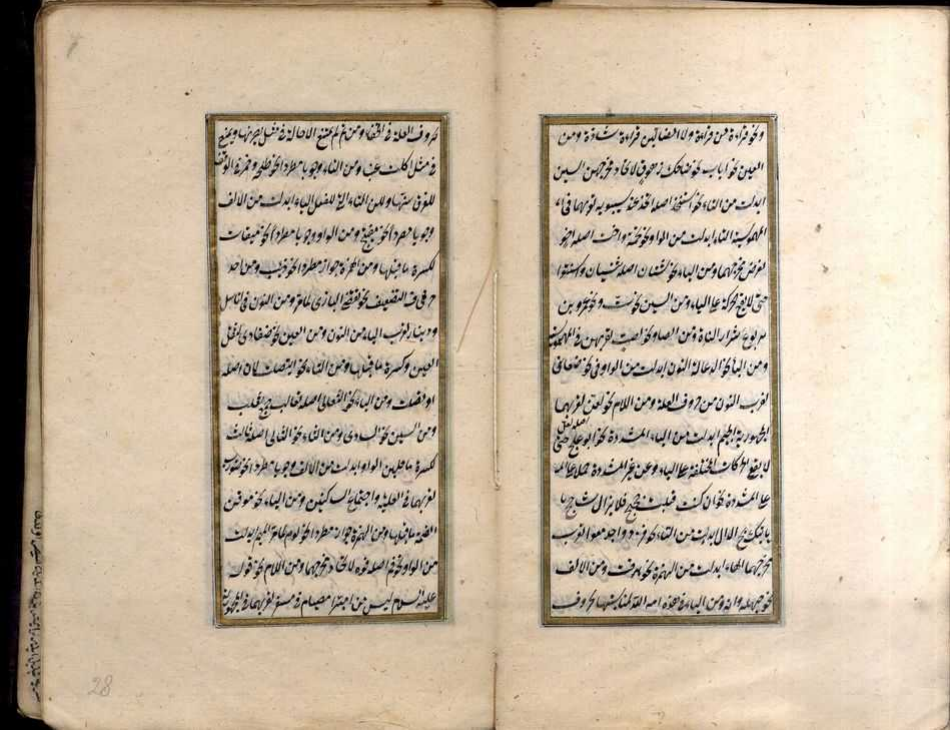 ونحو قراءة من قراءة ولا الضالين قراءة شاذة ومن
العين نحو اباب نحو ضاحك زهوق لاتحاد مخرجهن السين
ابدلت من التاء نحو استخذ اصله اتخذ عند سيبويه لقربهما فى
المهموسية التاء ابدلت من الواو نحو تخمة واخت اصله اخو
لقرب مخرجهما ومن الياء نحو ثنتان اصله ثنيان واسنتوا
حتى لا يقع الحركة على الياء ومن السين نحو ست ونحو عمرو بن
يربوع شرار النات ومن الصاد نحو لصت لقربهن فى المهموسية
ومن الباء نحو الذعالة النون ابدلت من الواو فى نحو صنعانى
لقرب النون من حروف العلة ومن اللام نحو لعن لقربهما
المجهورية الجيم ابدلت من الياء المشددة نحو ابو علج اصله على حتى
لا يقع الحركات المختلفة على الياء ومن غير المشددة حملا على
على المشددة نحو ان كنت قبلت حجتج فلا يزال شاحج
ياتيك بج الدال ابدلت من التاء نحو فزد واجدمعوا لقرب
مخرجهما الهاء ابدلت من الهمزة نحو هرقت ومن الالف
نحو حيهله وانه ومن الياء فى هذه امة الله لمناسبتها بحروف
بحروف العلة فى الخفاء ومن ثم لم يمتنع الامالة فى مثل يضربها ويمتنع
فى مثل اكلت عنبا ومن التاء وجوبا مطردا نحو طلحة وتمرة فى الوقف
للفرق بينها وبين التاء التى للفعل الياء ابدلت من الالف
وجوبا مطردا نحو مفيتيح ومن الواو وجوبا مطردا نحو ميقات
لكسرة ما قبلها ومن الهمزة جوازا مطردا نحو ذيب ومن احد
حرفى التضعيف نحو تقضى البازى لما مر ومن النون نحو اناسى
ودينار لقرب الياء من النون ومن العين نحو ضفادى لثقل
العين وكسرة ما قبلها ومن التاء نحو ايتصلت لان اصله
اوتصلت ومن الباء نحو الثعالى اصله ثعالب
ومن السين نحو السادى ومن الثاء نحو الثالى اصله ثالث
لكسرة ما قبلهن الواو ابدلت من الالف وجوبا مطردا نحو ضوارب
لقربهما فى العلية واجتماع الساكنين ومن الياء نحو موقن
لضمة ما قبلها ومن الهمزة جوازا مطردا نحو لوم لما مر الميم ابدلت
من الواو نحو فم اصله فوه لاتحاد مخرجهما ومن اللام نحو قول
عليه السلام ليس من امبر امصيام فى مسفر لقربهما فى المجهورية